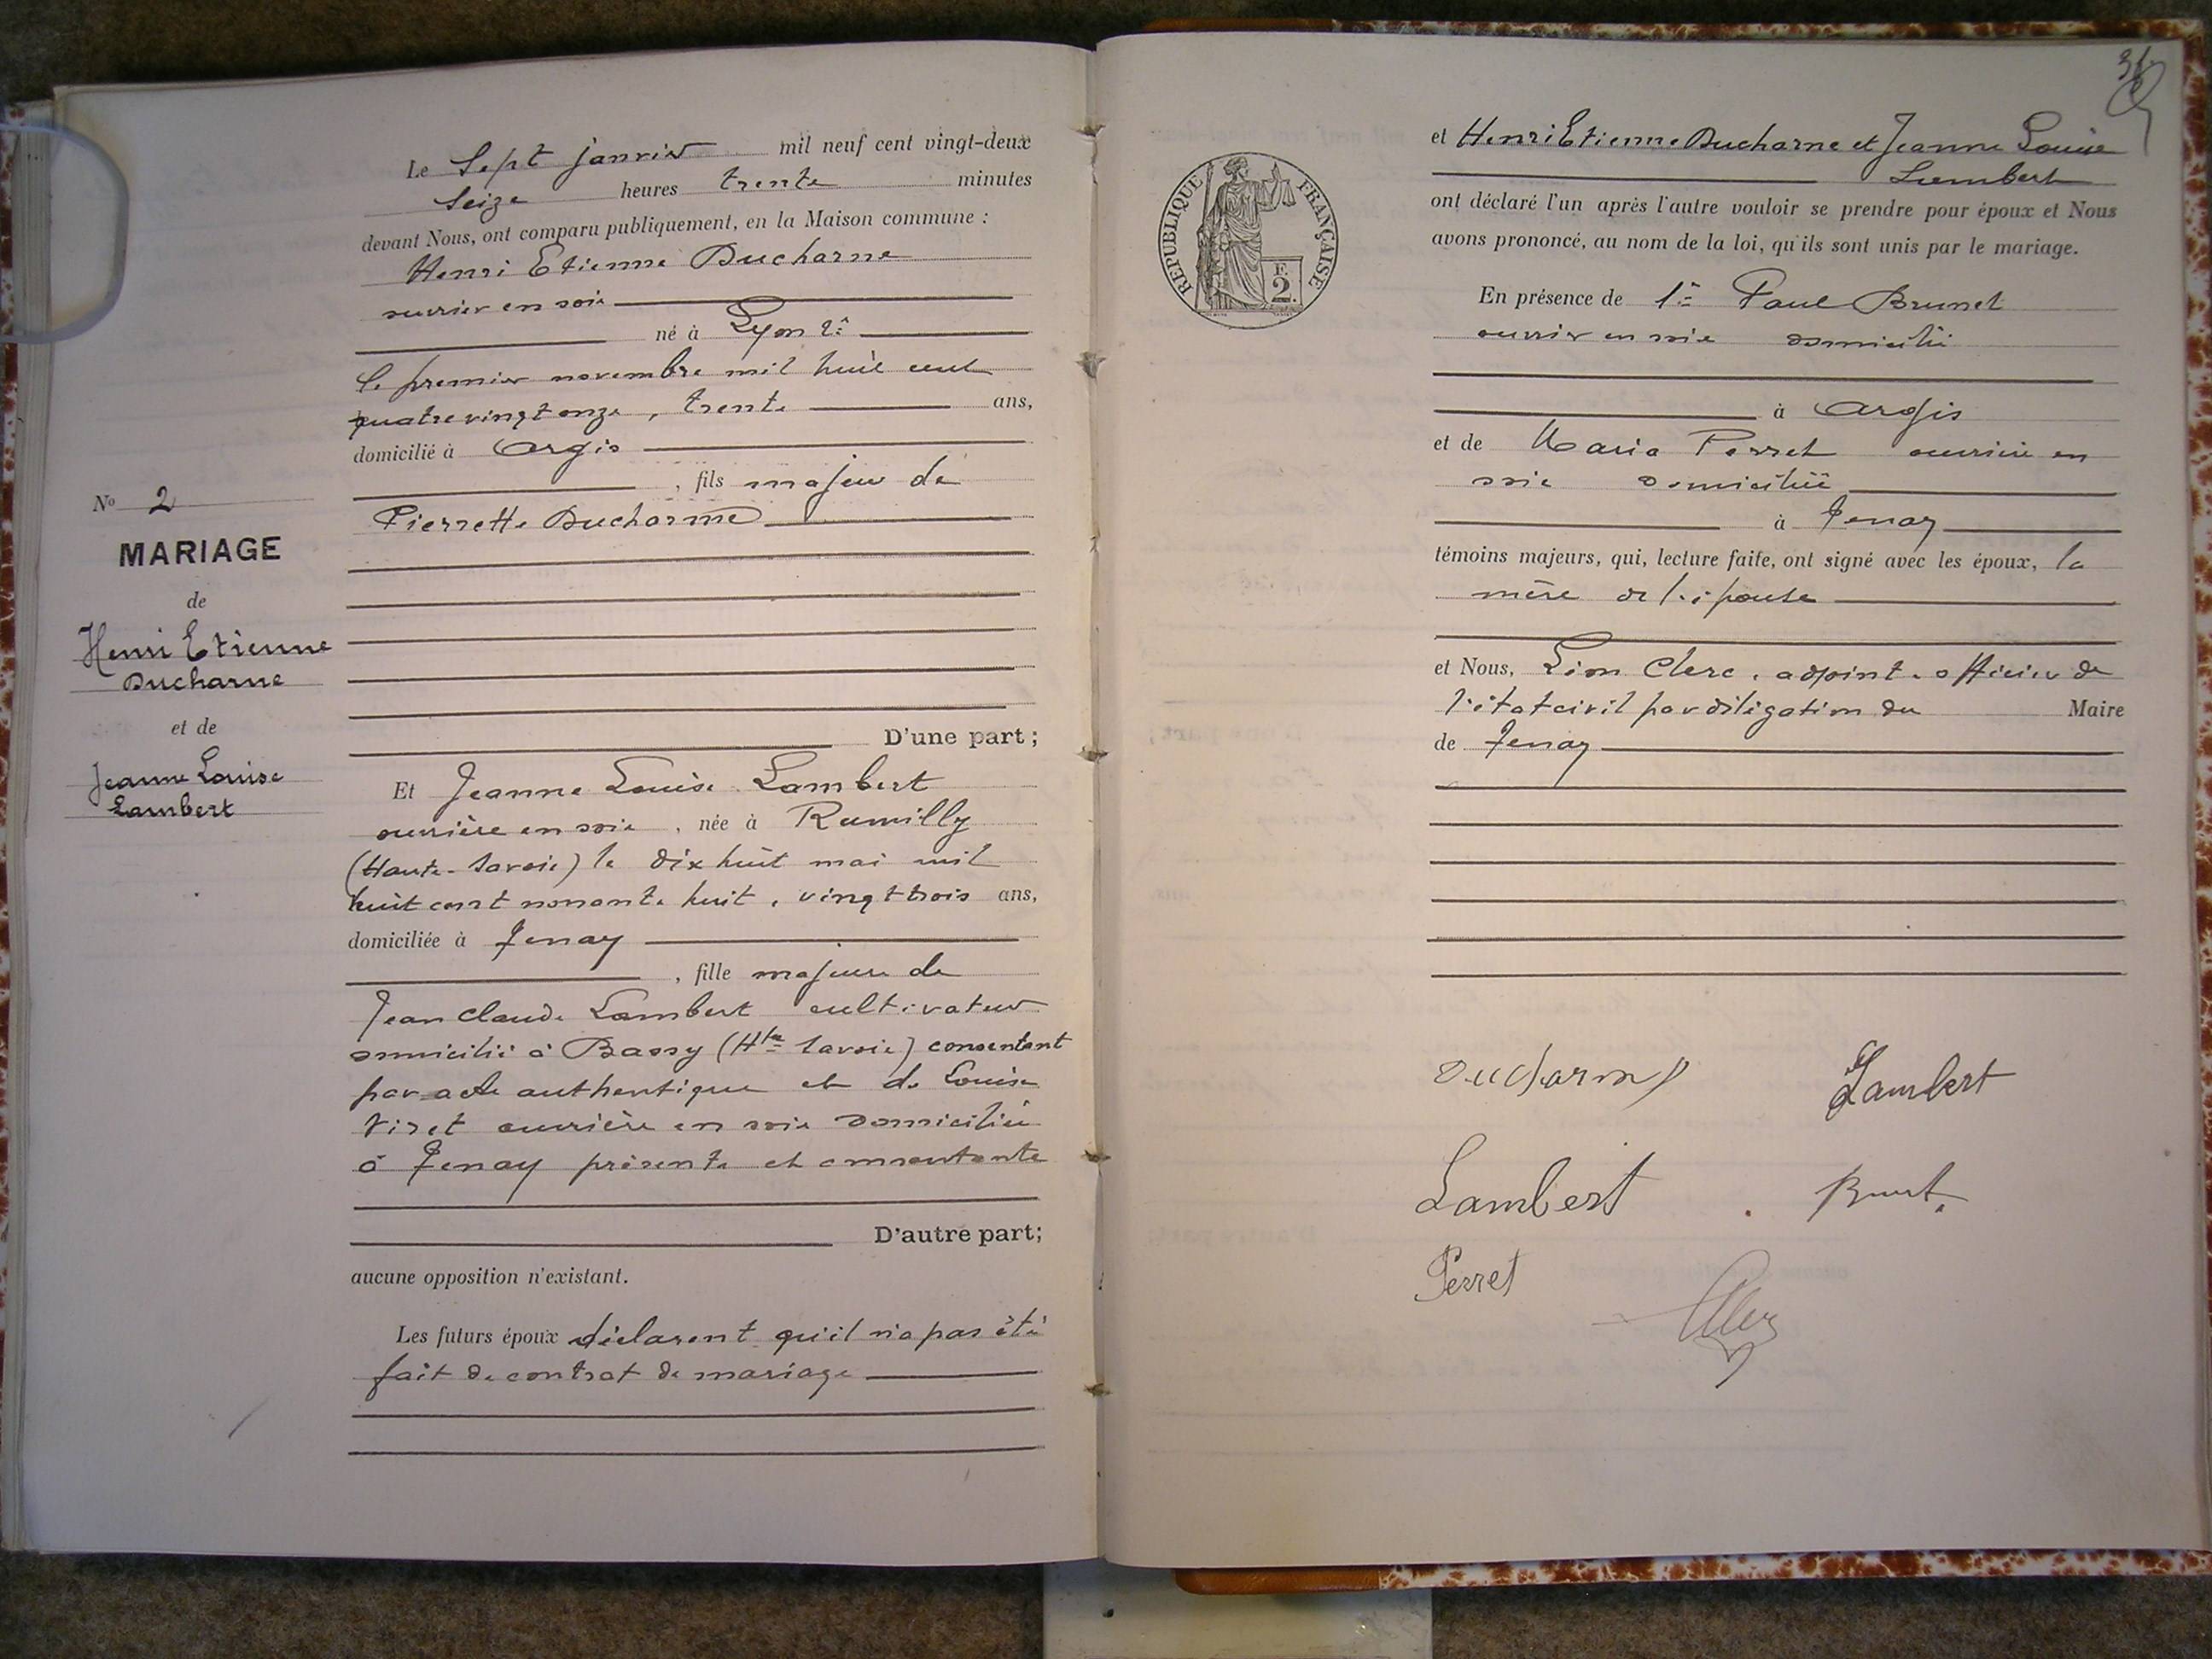 Le Sept janvier mil neuf cent vingt-deux
Seize heures trente minutes
devant Nous, ont comparu publiquement, en la Maison commune :
Henri Etienne Ducharne
ouvrier en soie
né à Lyon 2e
le premier novembre mil huit cent
quatre vingt onze, trente ans,
domicilié à Argis
, fils majeur de
Pierrette Ducharne
D'une part ;
Et Jeanne Louise Lambert
ouvrière en soie, née à Rumilly
(Haute-Savoie) le dix huit mai mil
huit cent nonante huit, vingt trois ans,
domiciliée à Tenay
, fille majeure de
Jean Claude Lambert cultivateur
domicilié à Bassy (Hte Savoie) consentant
par acte authentique et de Louise
Viret ouvrière en soie domiciliée
à Tenay présente et consentante
D'autre part;
aucune opposition n'existant.
Les futurs époux déclarent qu'il n'a pas été
fait de contrat de mariage
No 2
MARIAGE
de
Henri Etienne
Ducharne
et de
Jeanne Louise
Lambert
et Henri Etienne Ducharne et Jeanne Louise
Lambert
ont déclaré l'un après l'autre vouloir se prendre pour époux et Nous
avons prononcé, au nom de la loi, qu'ils sont unis par le mariage.
RÉPUBLIQUE FRANÇAISE
F.
2.
En présence de 1° Paul Brunet
ouvrier en soie domicilié
à Argis
et de Maria Perret ouvrière en
soie domiciliée
à Tenay
témoins majeurs, qui, lecture faite, ont signé avec les époux, la
mère de l'épouse
et Nous, Léon Clerc, adjoint, officier de
l'état civil par délégation du Maire
de Tenay
Ducharne Lambert
Lambert Brunet
Perret